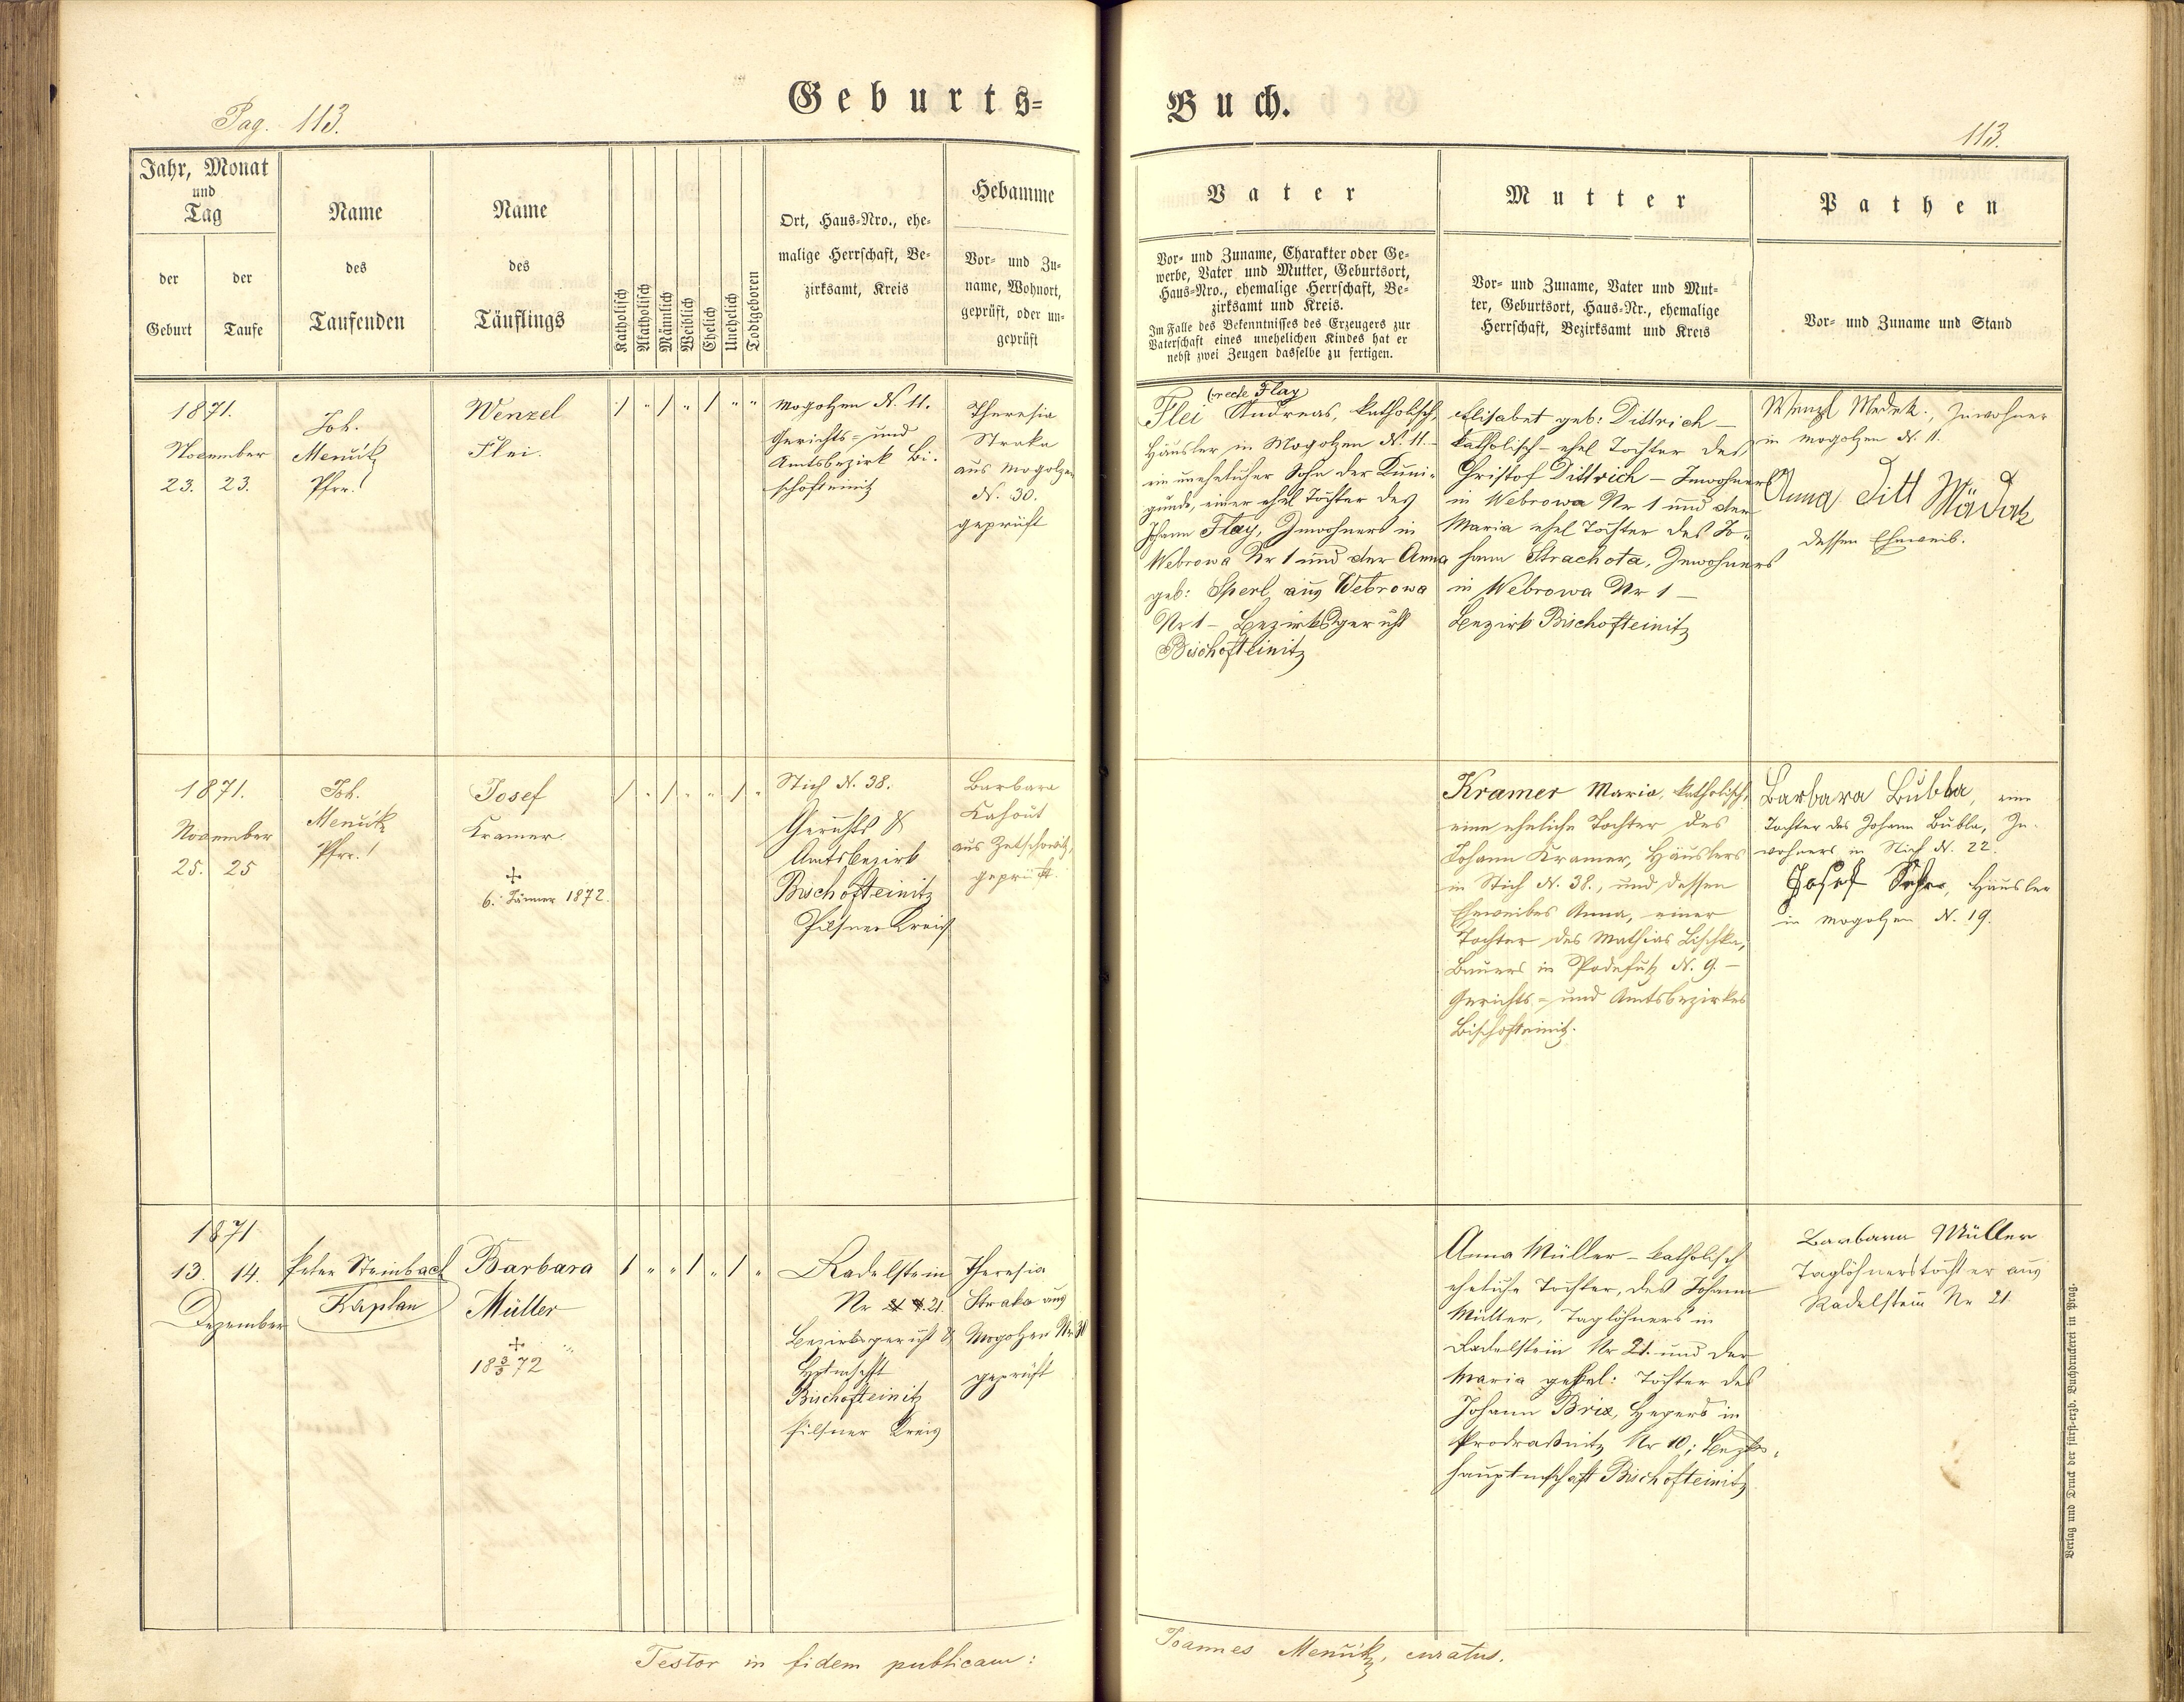 Pag. 113.
Geburts=
Jahr, Monat
und
Tag
der
Geburt
der
Taufe
Name
des
Taufenden
Name
des
Täuflings
Katholisch
Akatholisch
Männlich
Weiblich
Ehelich
Unehelich
Todtgeboren
Ort, Haus=Nro., ehe=
malige Herrschaft, Be=
zirksamt, Kreis
Hebamme
Vor= und Zu=
name, Wohnort,
geprüft, oder un=
geprüft
1871.
November
23. 23.
Joh.
Menuik
Pfrr.
Wenzel
Flei.
/ " / " / " "
Mogolzen N. 11.
Gerichts= und
Amtsbezirk Bi=
schofteinitz
Theresia
Straka
aus Mogolzen
N. 30.
geprüft
1871.
November
25. 25
Joh.
Menuik
Pfrr.
Josef
Kramer.
+
6. Jänner 1872.
/ " / " " / "
Stich N. 38.
Gerichts &
Amtsbezirk
Bischofteinitz
Pilsner Kreis
Barbara
Kahout
aus Zetschowitz,
geprüft.
1871
13. 14.
Dezember
Peter Steinbach
Kaplan
Barbara
Müller
+
18 3/3 72
/ " " / " / "
Radelstein
Nr 21.
Bezirksgericht &
Bischofteinitz
Pilsner Kreis
Theresia
Straka aus
Mogolzen Nr 30
geprüft
Testor in fidem publicam:
Buch.
113.
Vater
Vor= und Zuname, Charakter oder Ge=
werbe, Vater und Mutter, Geburtsort,
Haus=Nro., ehemalige Herrschaft, Be=
zirksamt und Kreis.
Im Falle des Bekenntnisses des Erzeugers zur
Vaterschaft eines unehelichen Kindes hat er
nebst zwei Zeugen dasselbe zu fertigen.
Mutter
Vor= und Zuname, Vater und Mut=
ter, Geburtsort, Haus=Nr., ehemalige
Herrschaft, Bezirksamt und Kreis
Pathen
Vor= und Zuname und Stand
(recte Flay)
Flei Andreas, katholisch,
Häusler in Mogolzen N. 11.—
ein unehelicher Sohn der Kuni=
gunde, einer ehel Tochter des
Johann Flay, Inwohners in
Webrowa Nr 1 und der Anna
geb: Sperl aus Webrowa
Nr 1 — Bezirksgericht
Bischofteinitz
Elisabet geb: Dittrich —
katholisch — ehel Tochter des
Christof Dittrich — Inwohners
in Webrowa Nr 1 und der
Maria ehel Tochter des Jo=
hann Strachota, Inwohners
in Webrowa Nr 1 —
Bezirk Bischofteinitz
Wenzl Medek., Inwohner
in Mogolzen N. 11.
Anna
dessen Eheweib.
Kramer Maria, katholisch,
eine eheliche Tochter des
Johann Kramer, Häuslers
in Stich N. 38., und dessen
Eheweibes Anna, einer
Tochter des Mathias Lischka,
Bauers in N. 9. —
Gerichts= und Amtsbezirkes
Bischofteinitz.
Barbara Bubla, eine
Tochter des Johann Bubla, In=
wohners in Stich N. 22.
Josef Häusler
in Mogolzen N. 19.
Anna Müller — katholisch
eheliche Tochter, des Johann
Müller, Taglöhners in
Radelstein Nr 21. und der
Maria Tochter des
Johann Brix, Hegers in
Nr 10; Bezirks=
hauptmschaft Bischofteinitz
Barbara Müller
Taglöhnerstochter aus
Radelstein Nr 21.
Joannes Menuik, curatus.
Verlag und Druck der fürst=erzb. Buchdruckerei in Prag.